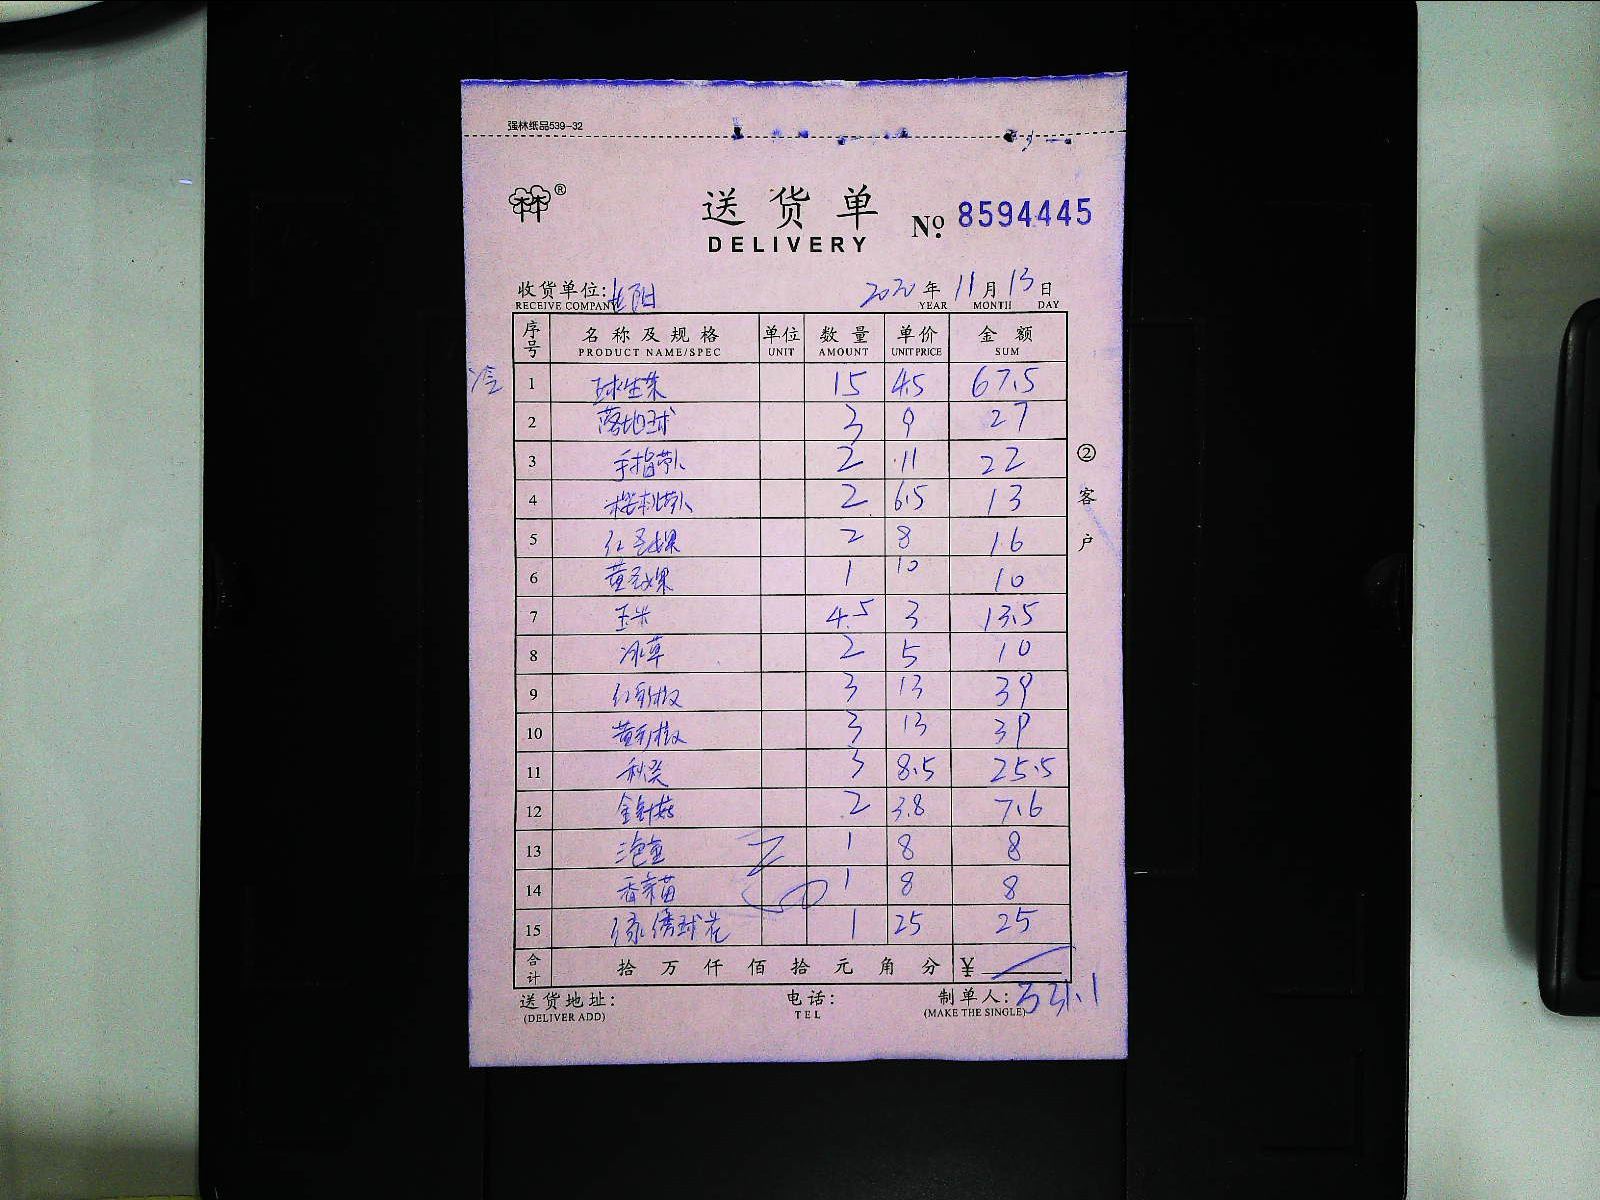 强林纸品539-32
林®
送货单 № 8594445
DELIVERY
收货单位: 2020年11月13日
RECEIVE COMPANY YEAR MONTH DAY
序号 名称及规格 单位 数量 单价 金额
PRODUCT NAME/SPEC UNIT AMOUNT UNIT PRICE SUM
1 球生菜 15 4.5 67.5
2 落地球 3 9 27
3 手指萝卜 2 11 22
4 樱桃萝卜 2 6.5 13
5 红圣女果 2 8 16
6 黄圣女果 1 10 10
7 玉米 4.5 3 13.5
8 冰草 2 5 10
9 红彩椒 3 13 39
10 黄彩椒 3 13 39
11 秋葵 3 8.5 25.5
12 金针菇 2 3.8 7.6
13 1 8 8
14 香菜苗 1 8 8
15 球花 1 25 25
合计 拾万仟佰拾元角分 ¥
331.1
送货地址: 电话: 制单人:
(DELIVER ADD) TEL (MAKE THE SINGLE)
②客户